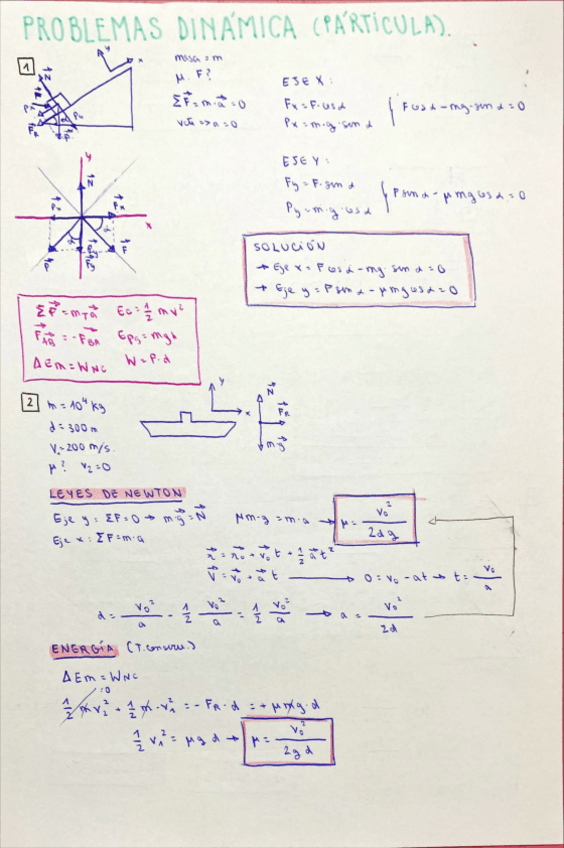 PROBLEMAS DINÁMICA (PÁRTÍCULA).
1
masa = m
μ. F?
ΣF = m·a = 0
vcte => a = 0
EJE X:
Fx = F·cos α
Px = m·g·sen α
F cos α - mg·sen α = 0
EJE Y:
Fy = F·sen α
Py = m·g·cos α
F sen α - μ mg cos α = 0
y
x
SOLUCIÓN
→ Eje x = F cos α - mg·sen α = 0
→ Eje y = F sen α - μ mg cos α = 0
ΣF = m_T a   Ec = 1/2 mv²
F_AB = -F_BA   Epg = mgh
ΔEm = W_NC   W = F·d
2
m = 10⁴ kg
d = 300 m
V₀ = 200 m/s.
μ?   v₂ = 0
y
x
N
F_R
mg
LEYES DE NEWTON
Eje y: ΣF = 0 → m·g = N
Eje x: ΣF = m·a
μm·g = m·a → μ = v₀²/2dg
r = r₀ + v₀t + 1/2 a t²
V = v₀ + a t → 0 = v₀ - at → t = v₀/a
d = v₀²/a - 1/2 v₀²/a = 1/2 v₀²/a → a = v₀²/2d
ENERGÍA (T. conserv.)
ΔEm = W_NC
1/2 m v₂² + 1/2 m·v₁² = - F_R·d = + μmg·d
:0
1/2 v₁² = μg d → μ = v₀²/2gd